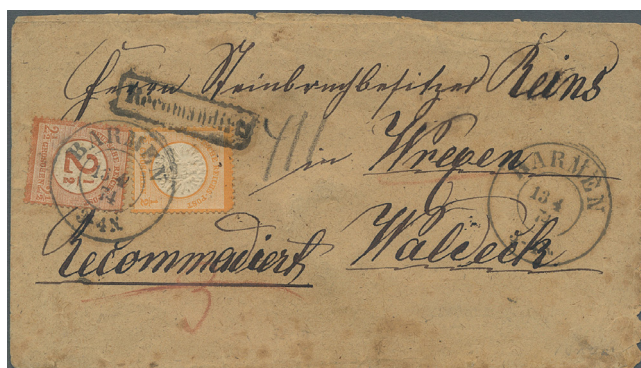 Herrn Steinbruchbesitzer Reins
Recomandirt
411
in Wrexen
BARMEN
13 4
74
2½
BARMEN
13 4
74
Recommadiert Waldeck